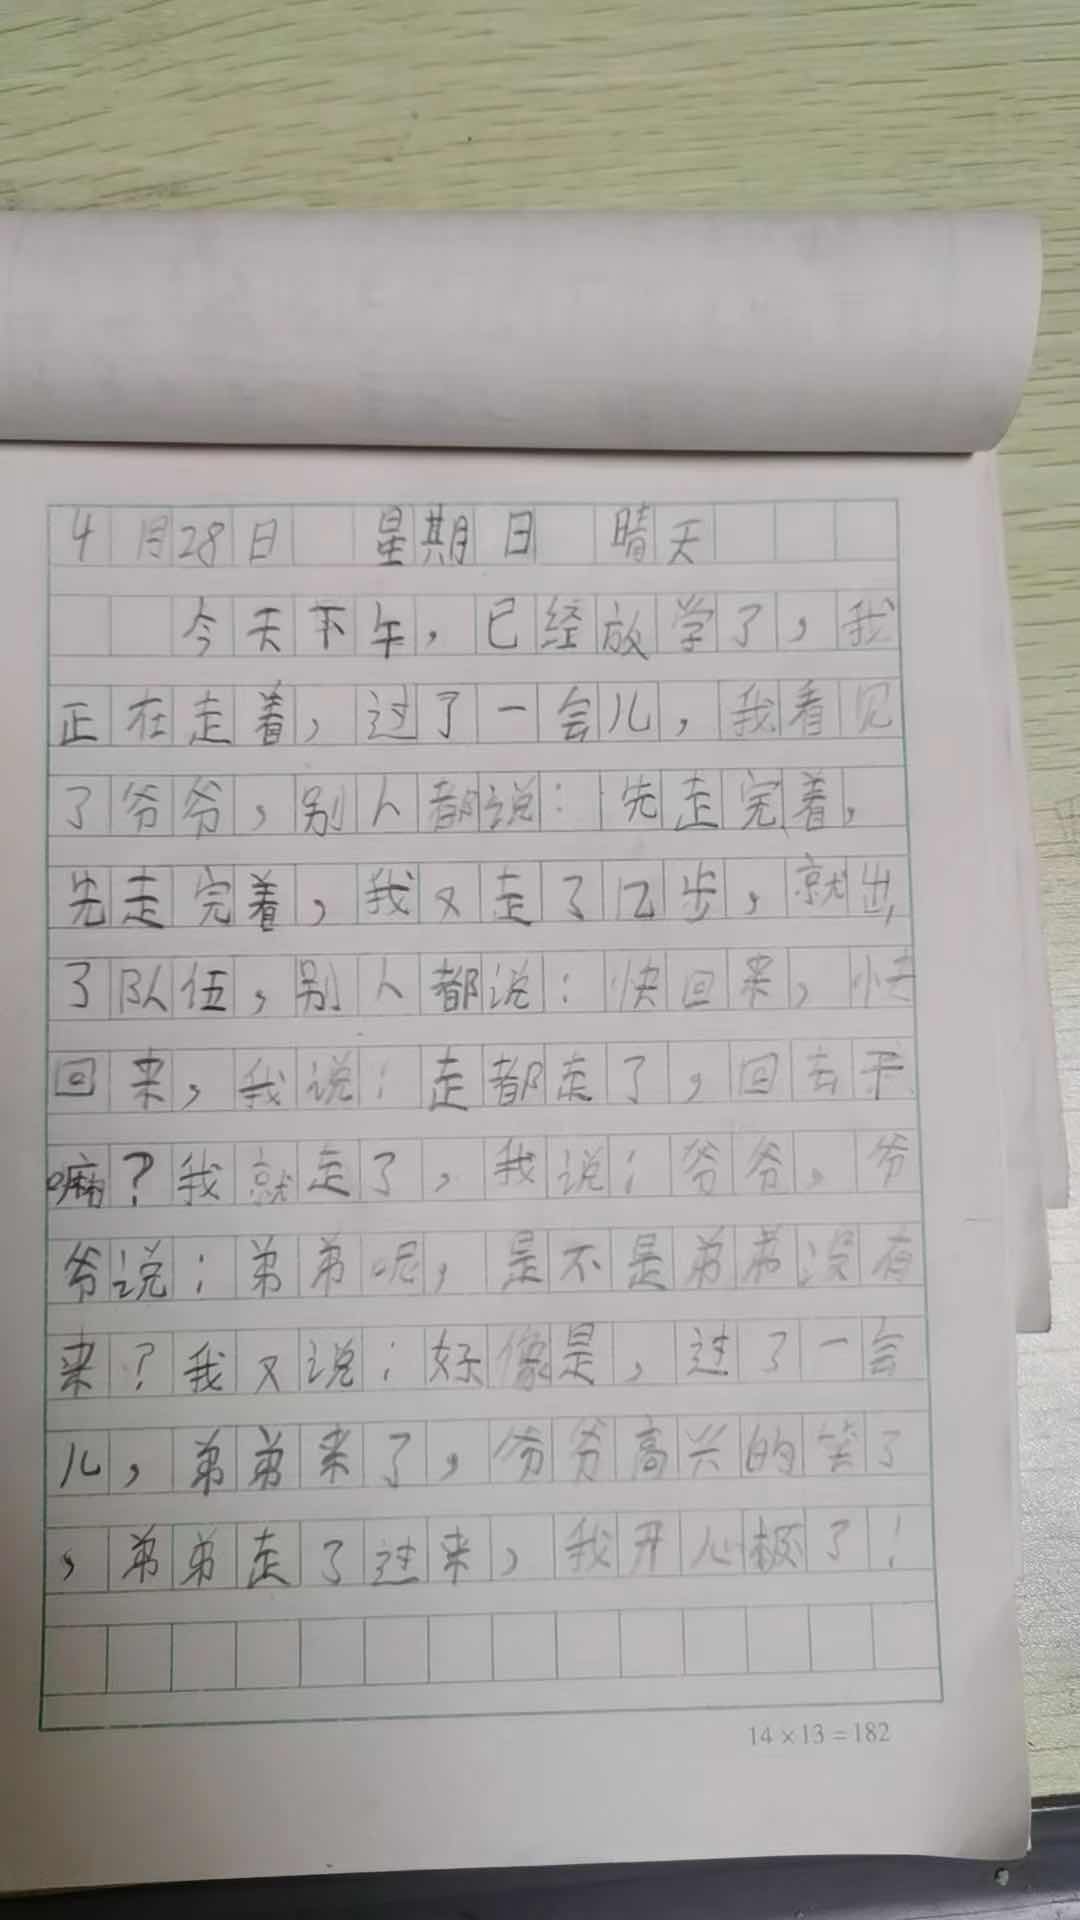 4月28日 星期日 晴天
今天下午，已经放学了，我
正在走着，过了一会儿，我看见
了爷爷，别人都说：先走完着，
先走完着，我又走了几步，就出
了队伍，别人都说：快回来，快
回来，我说：走都走了，回去干
嘛？我就走了，我说：爷爷，爷
爷说：弟弟呢，是不是弟弟没有
来？我又说：好像是，过了一会
儿，弟弟来了，爷爷高兴的笑了
，弟弟走了过来，我开心极了！
14×13=182